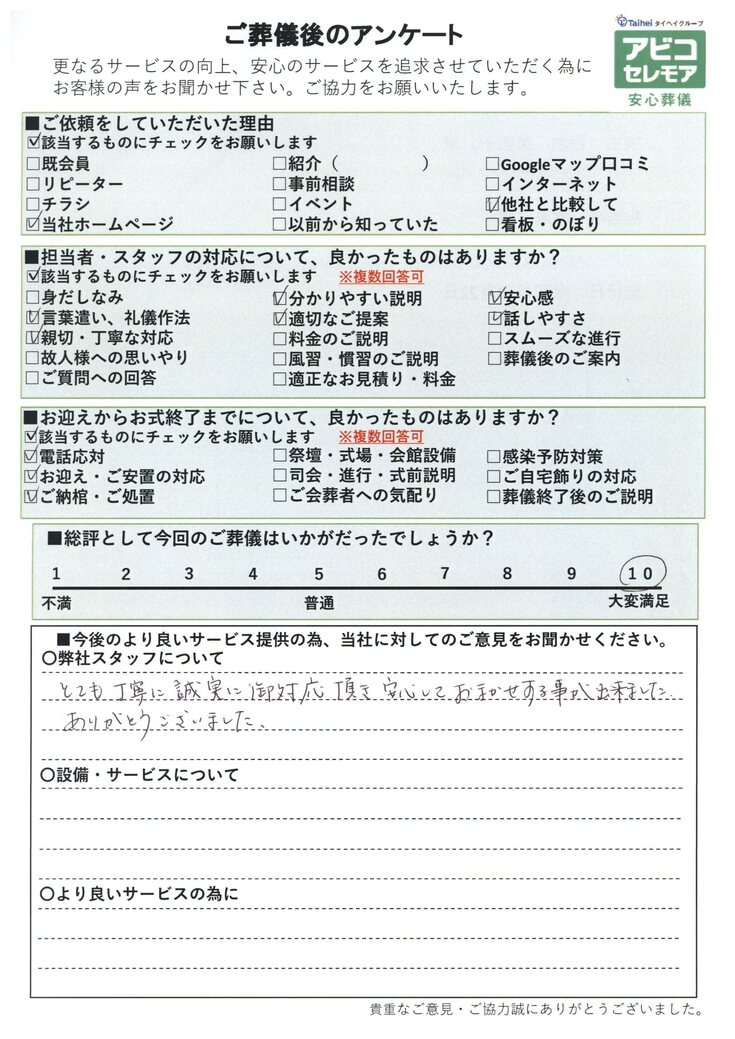 ご葬儀後のアンケート
Taihei タイヘイグループ
アビコ
セレモア
安心葬儀
更なるサービスの向上、安心のサービスを追求させていただく為に
お客様の声をお聞かせ下さい。ご協力をお願いいたします。
■ご依頼をしていただいた理由
☑該当するものにチェックをお願いします
□既会員 □紹介（ ） □Googleマップ口コミ
□リピーター □事前相談 □インターネット
□チラシ □イベント ☑他社と比較して
☑当社ホームページ □以前から知っていた □看板・のぼり
■担当者・スタッフの対応について、良かったものはありますか？
☑該当するものにチェックをお願いします ※複数回答可
□身だしなみ ☑分かりやすい説明 ☑安心感
☑言葉遣い、礼儀作法 ☑適切なご提案 ☑話しやすさ
☑親切・丁寧な対応 □料金のご説明 □スムーズな進行
□故人様への思いやり □風習・慣習のご説明 □葬儀後のご案内
□ご質問への回答 □適正なお見積り・料金
■お迎えからお式終了までについて、良かったものはありますか？
☑該当するものにチェックをお願いします ※複数回答可
☑電話応対 □祭壇・式場・会館設備 □感染予防対策
☑お迎え・ご安置の対応 □司会・進行・式前説明 □ご自宅飾りの対応
☑ご納棺・ご処置 □ご会葬者への気配り □葬儀終了後のご説明
■総評として今回のご葬儀はいかがだったでしょうか？
1 2 3 4 5 6 7 8 9 10
不満 普通 大変満足
■今後のより良いサービス提供の為、当社に対してのご意見をお聞かせください。
〇弊社スタッフについて
とても丁寧に誠実に御対応頂き安心しておまかせする事が出来ました
ありがとうございました。
〇設備・サービスについて
〇より良いサービスの為に
貴重なご意見・ご協力誠にありがとうございました。